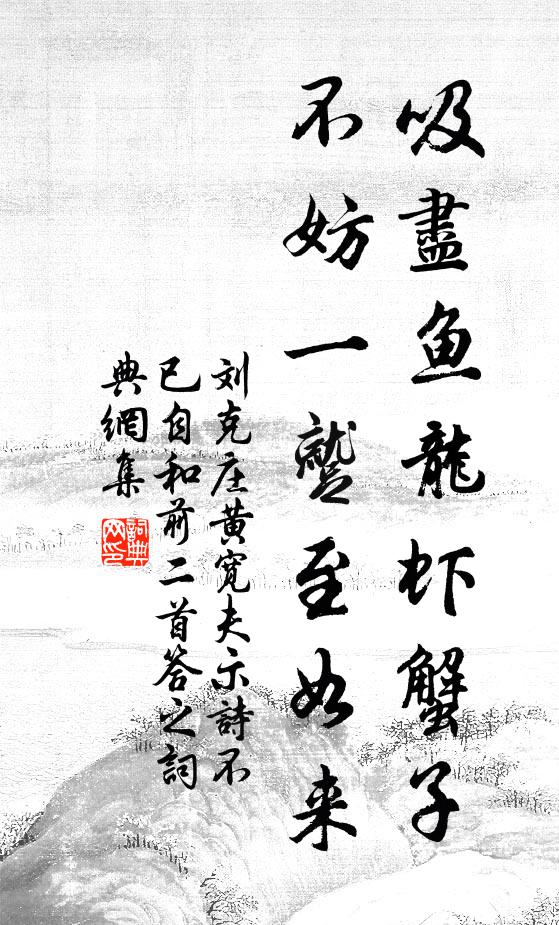 吸盡鱼龍虾蟹子
不妨一蹵至如来
刘克庄黄宽夫示詩不
已自和前二首答之詞
典網集
詞典
网印